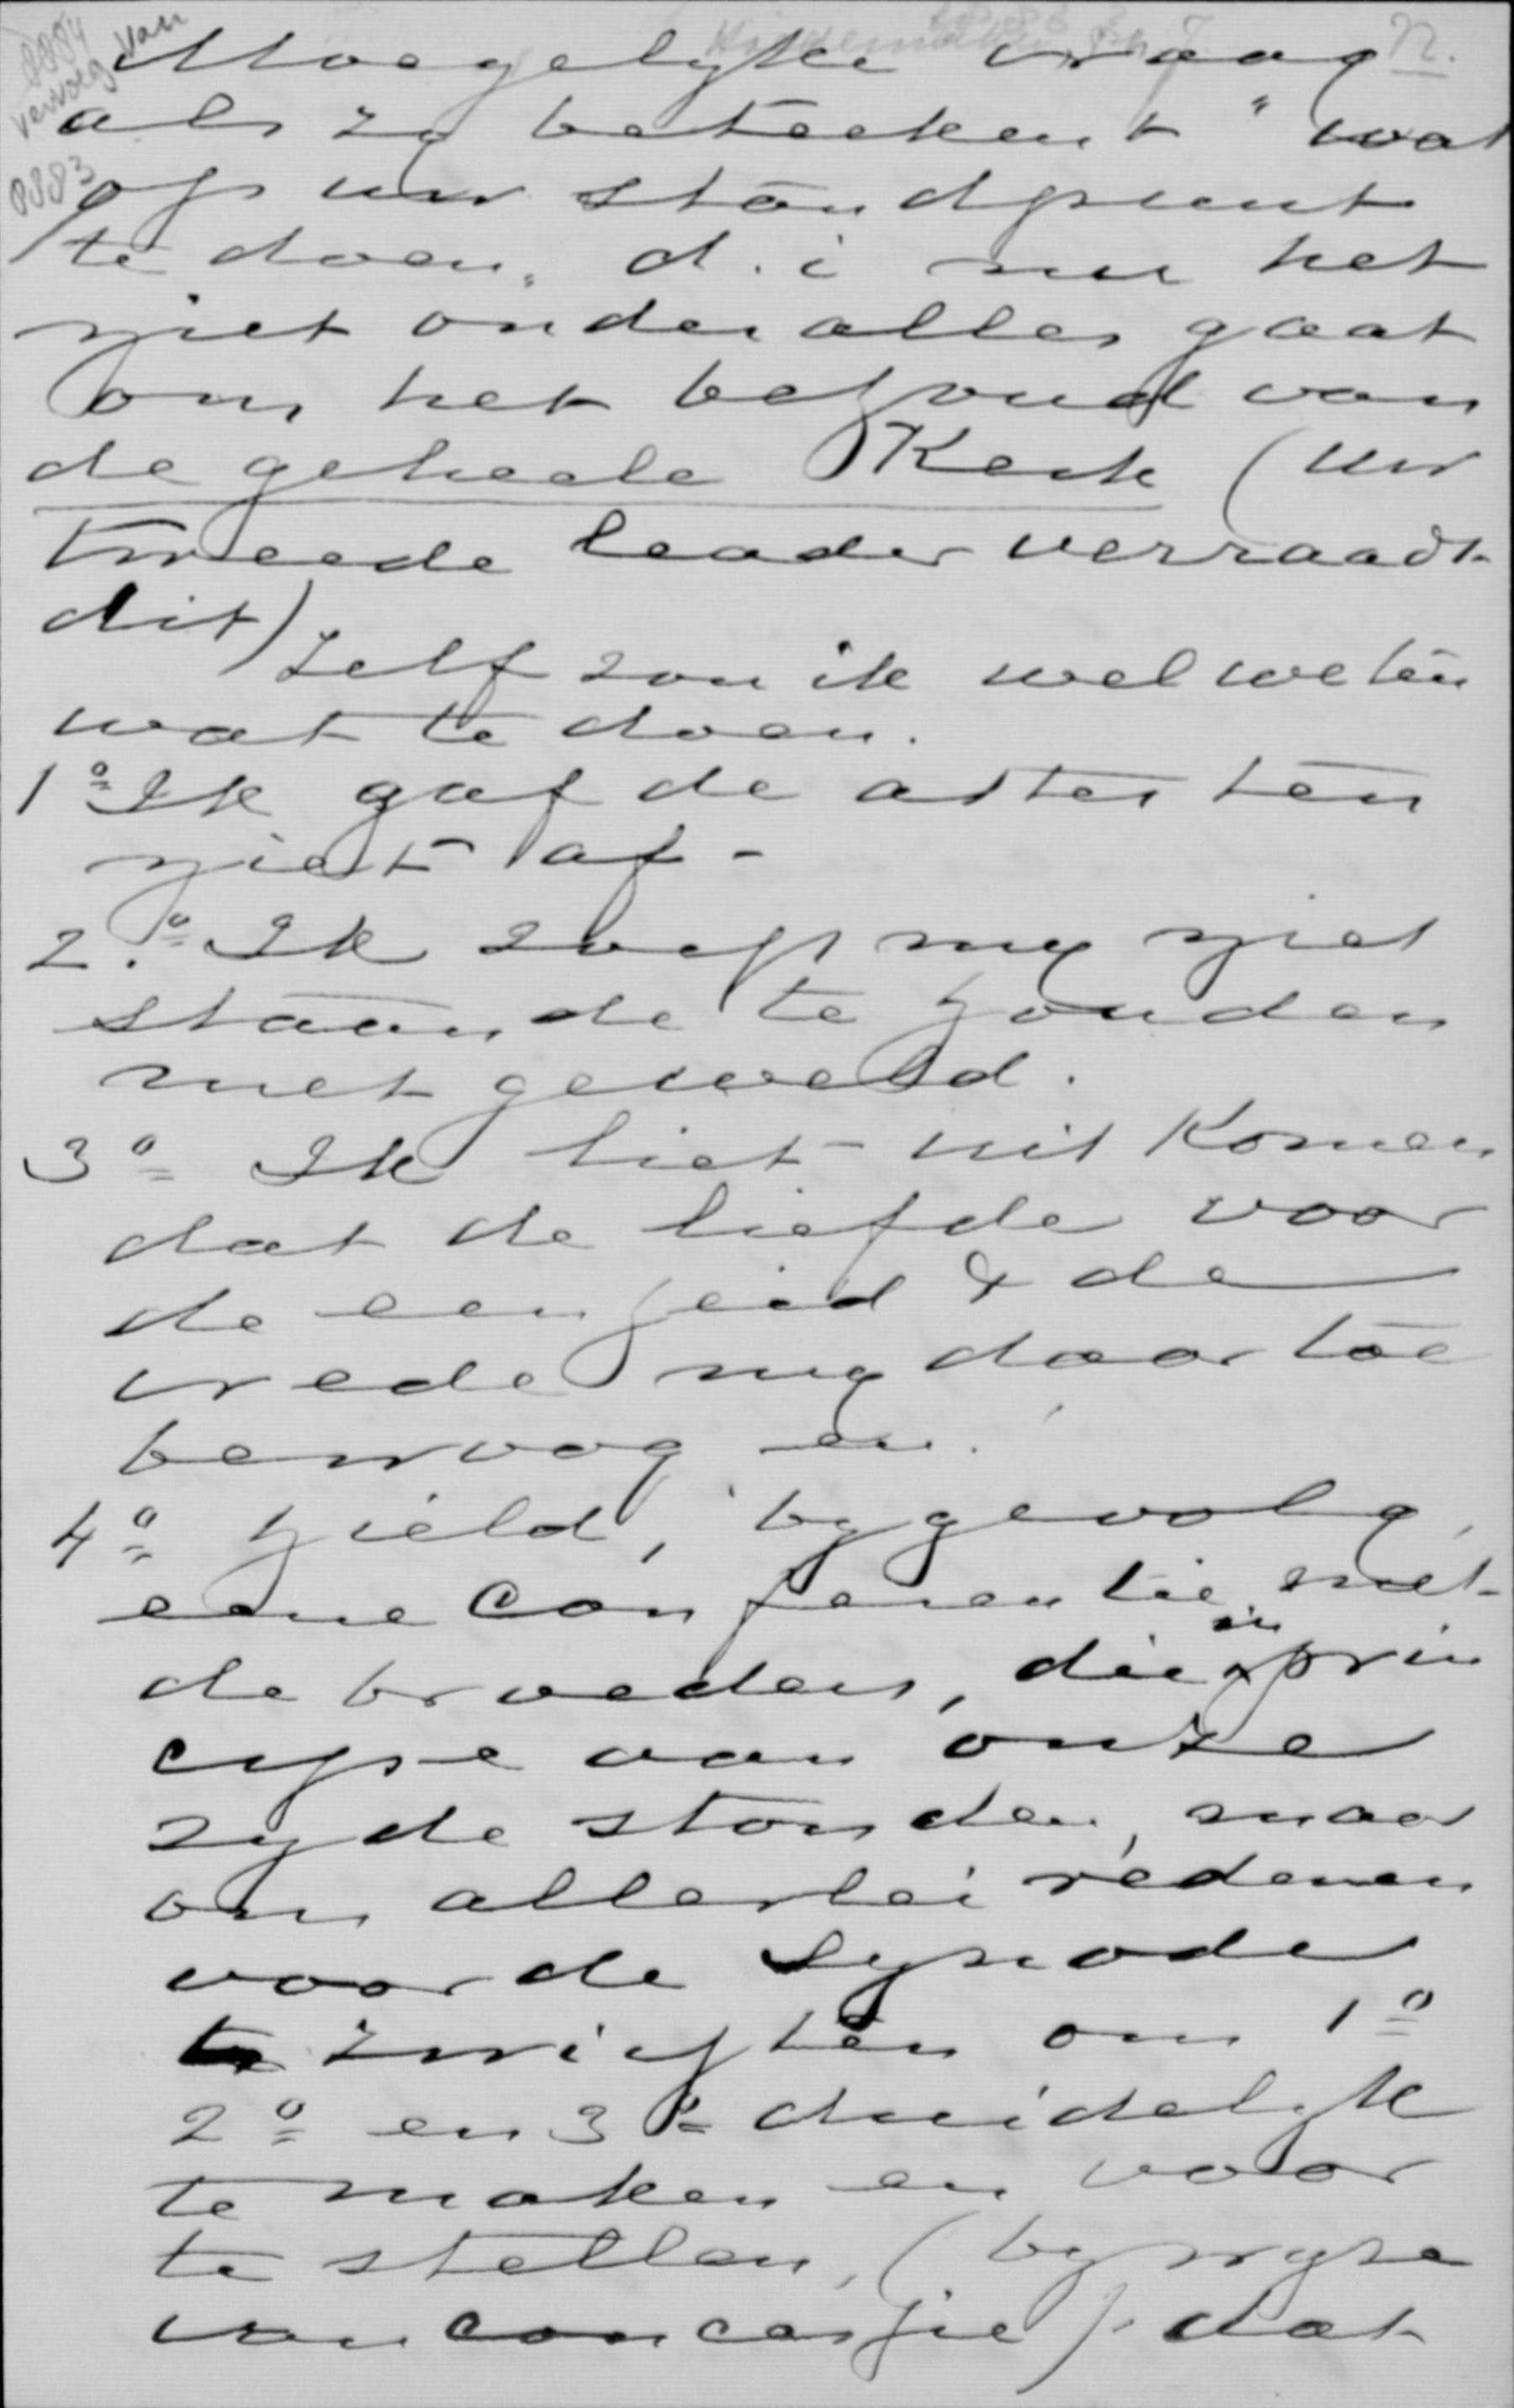 8884
vervolg van
8883
n.
Moegelyke vraag
als zy beteekent "wat
op uw standpunt
te doen" d. i nu het
niet onder alles gaat
om het behoud van
de geheele Kerk (uw
tweede leader verraadt
dit)
Zelf zou ik wel weten
wat te doen.
1o Ik gaf de attesten
niet af -
2.o Ik zocht my niet
staande te houden
met geweld.
3o Ik liet uit komen
dat de liefde voor
de eenheid & de
vrede my daar toe
bewoog en.
4o hield, by gevolg,
eene conferentie met
de broeders, die in prin
cipe aan onze
zyde stonden, maar
om allerlei redenen
voor de Synode
zwichten om 1o
2o en 3o duidelyk
te maken en voor
te stellen, (by wyze
van concessie) dat